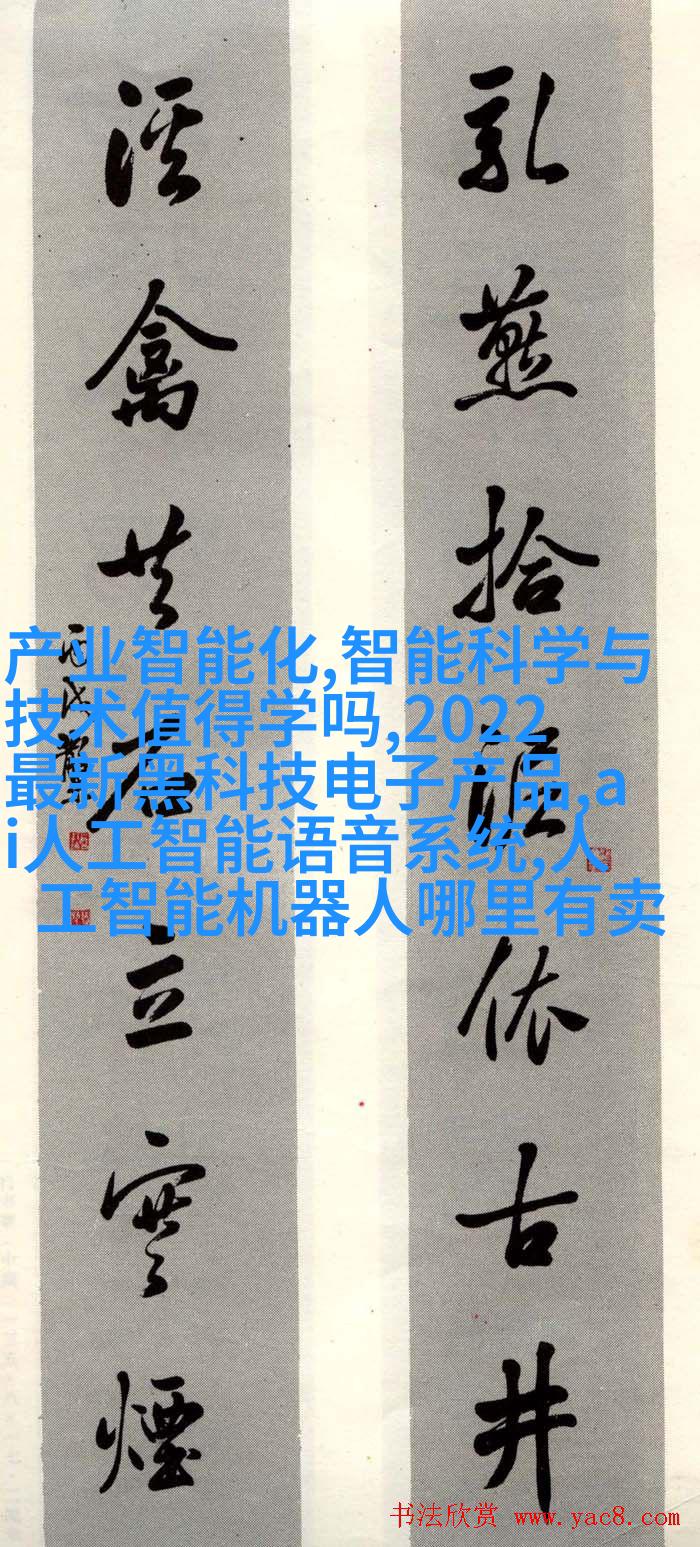 乳燕拾泥依古井
溪禽共石立寒煙
产业智能化,智能科学与
技术值得学吗,2022
最新黑科技电子产品,a
i人工智能语音系统,人
工智能机器人哪里有卖
书法欣赏 www.yac8.com